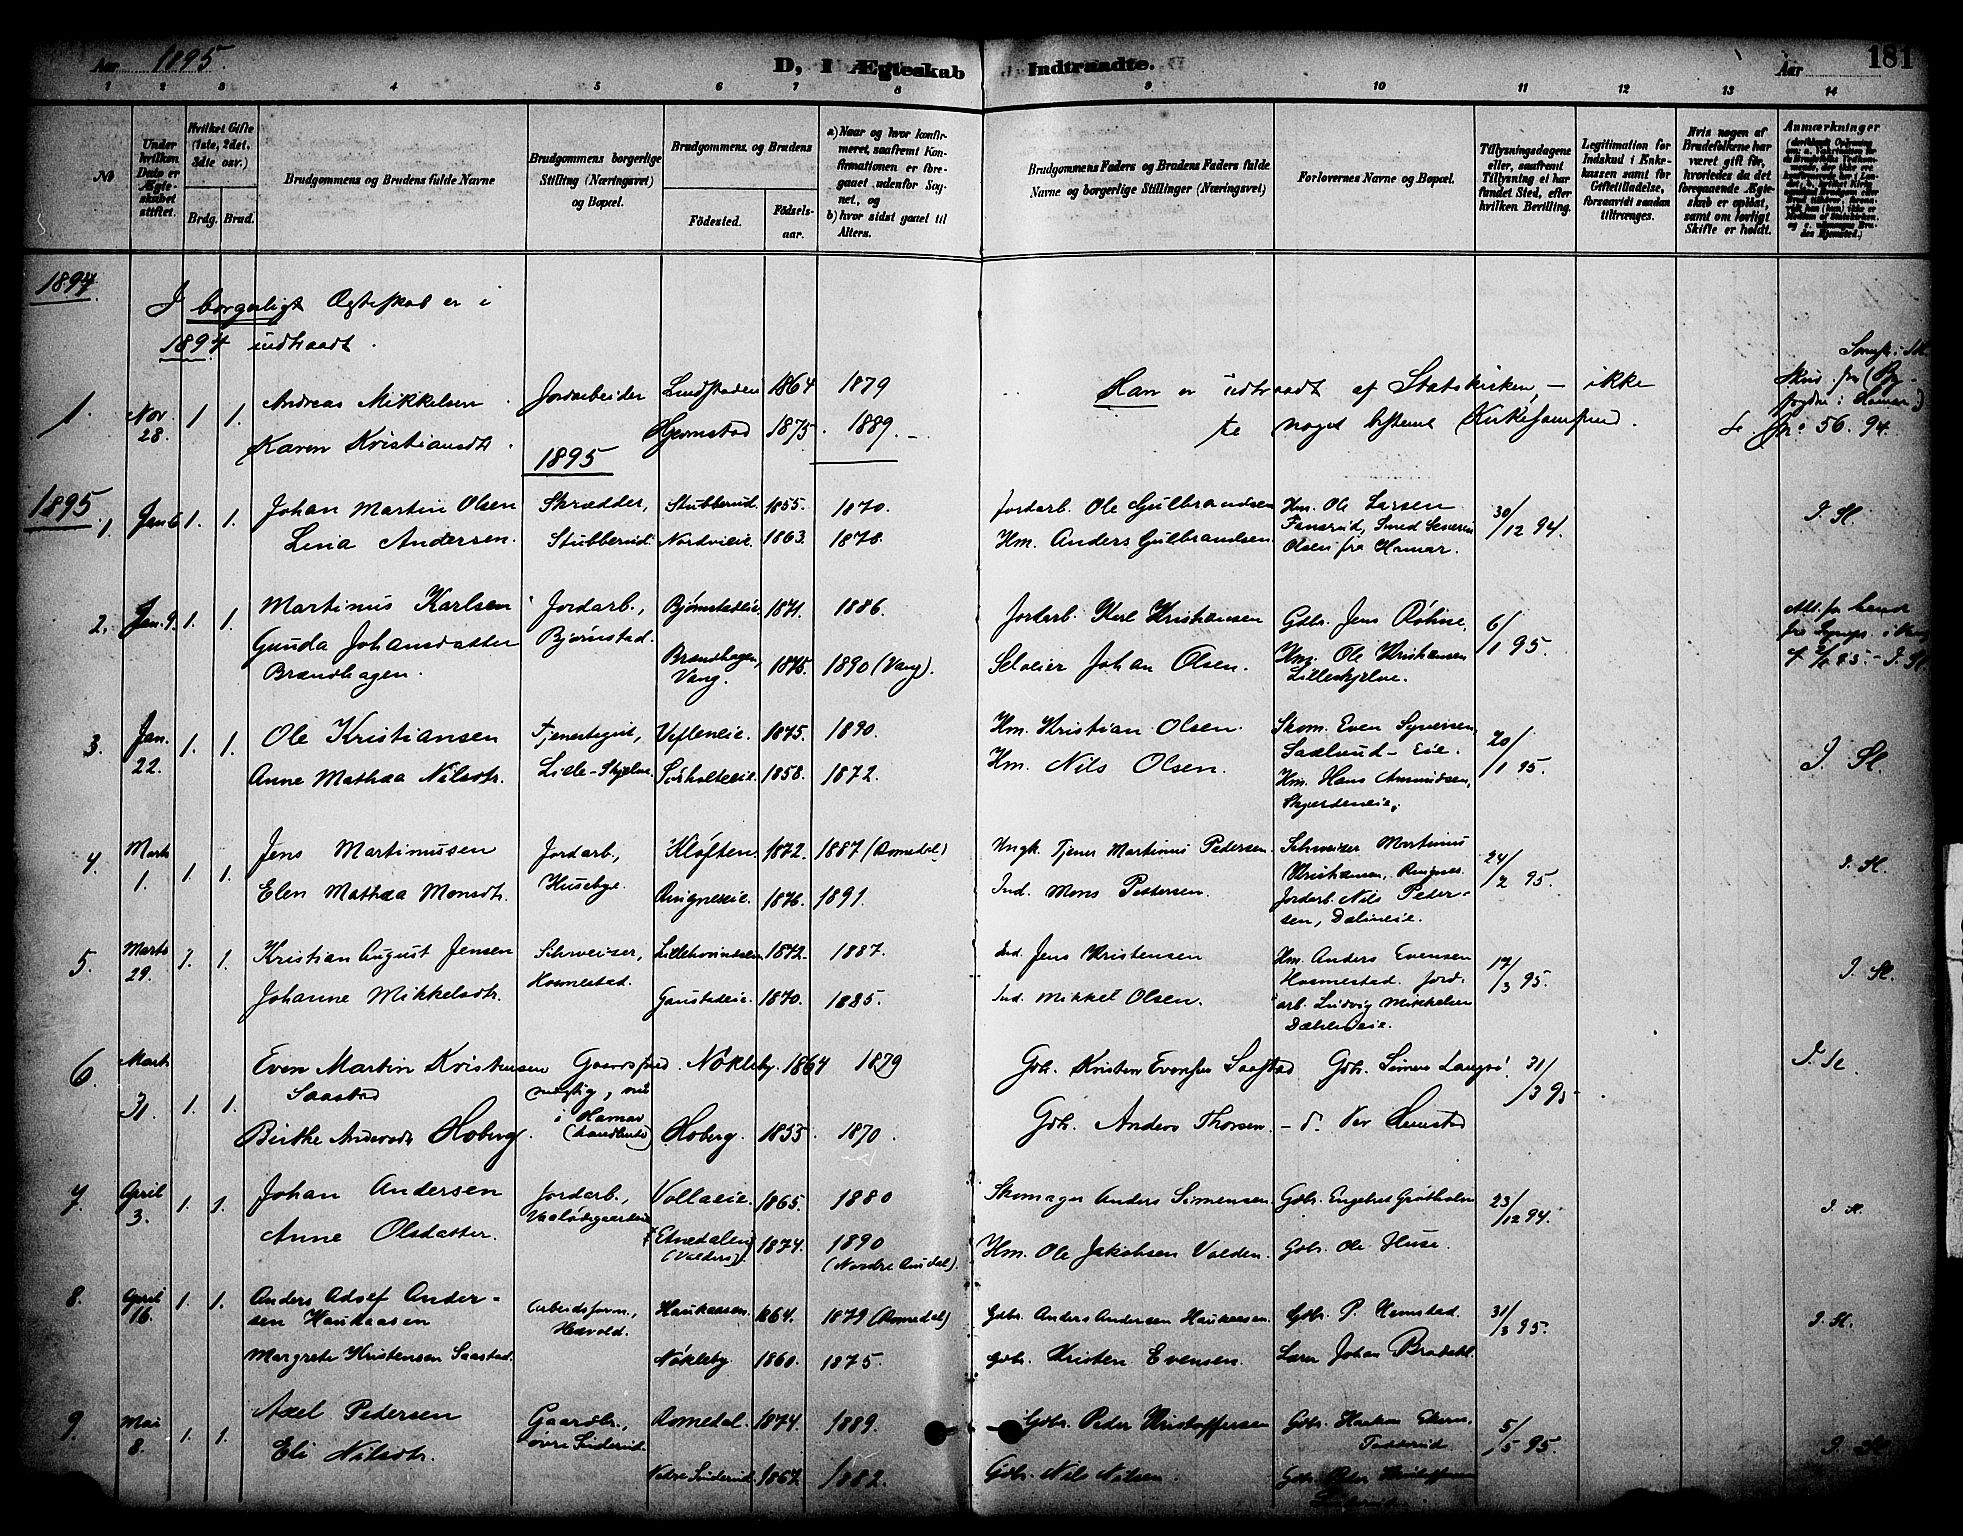 Aar 1895.
D, I Ægteskab Indtraadte.
Aar
181
1 2 3 4 5 6 7 8 9 10 11 12 13 14
№
Under hvilken Dato er Ægteskabet stiftet.
Hvilket Gifte (1ste, 2det, 3die osv.)
Brdg. Brud.
Brudgommens og Brudens fulde Navne
Brudgommens borgerlige Stilling (Næringsvei) og Bopæl.
Brudgommens og Brudens
Födested.
Födselsaar.
a) Naar og hvor konfirmeret, saafremt Konfirmationen er foregaaet udenfor Sognet, og
b) hvor sidst gaaet til Alters.
Brudgommens Faders og Brudens Faders fulde Navne og borgerlige Stillinger (Næringsvei)
Forlovernes Navne og Bopæl.
Tillysningsdagene eller, saafremt Tillysning ei har fundet Sted, efter hvilken Bevilling.
Legitimation for Indskud i Enkekassen samt for Giftetilladelse, forsaavidt saadan tiltrænges.
Hvis nogen af Brudefolkene har været gift för, hvorledes da det foregaaende Ægteskab er oplöst, samt om lovligt Skifte er holdt.
Anmærkninger
1894.
I borgerligt Ægteskab er i
1894 indtraadt.
1. Nov 28. 1 1. Andreas Mikkelsen Jordarbeider 1864 1879
Karen Kristiansdt. Hjermstad 1875. 1889.
Han er udtraadt af Statskirken, – ikke
te noget bestemt Kirkesamfund. 56. 94.
1895
1895
1. Jan 6. 1. 1. Johan Martin Olsen Skrædder, Stubberud. 1855. 1870. Jordarb. Ole Gulbrandsen Hm. Ole Larsen 30/12 94. I. Sl.
Lina Andersen. Stubberud. Nordvieie. 1863. 1878. Hm. Anders Gulbrandsen. Fansrud, Smed Severin
Olsen fra Hamar.
2. Jan. 9. 1. 1. Martinus Karlsen Jordarb., Bjørnstadeie. 1871. 1886. Jordarb. Karl Kristiansen Gdbr. Jens Röhne, 6/1 95.
Gunda Johansdatter Bjørnstad. Brændhagen, Vang. 1875. 1890 (Vang). Selveier Johan Olsen. Hm. Ole Kristiansen
Brændhagen. Lilleskjelve.
3. Jan. 22. 1. 1. Ole Kristiansen Tjenestegut, 1875. 1890. Hm. Kristian Olsen. Skom. Even Syversen 20/1 95. I. Sl.
Anne Mathea Nilsdtr. Lille-Skjelve. Sorholteeie. 1858. 1872. Hm. Nils Olsen. Saxlund-Eie.
Hm. Hans Amundsen,
Skjerdeneie.
4. Marts 1. 1. 1. Jens Martinusen Jordarb., Kløften. 1872. 1887 (Romedal) Ungk. Tjener Martinus Pedersen. Schweizer Martinus 24/2 95. I. Sl.
Elen Mathea Monsdtr. Husebye. Ringneseie. 1876. 1891. Ind. Mons Pettersen. Kristiansen, Ringnes.
Jordarb. Nils Pedersen, Dælineie.
5. Marts 29. 1. 1. Kristian August Jensen Schweizer, 1872. 1887. Ind. Jens Kristensen Hm. Anders Evensen 17/3 95. I. Sl.
Johanne Mikkelsdtr. Hosmestad. Gaustadeie. 1870. 1885. Ind. Mikkel Olsen. Hosmestad. Jordarb. Ludvig Mikkelsen
Dæhleneie.
6. Marts 31. 1. 1. Even Martin Kristensen Nökleby. 1864 1879 Gdb. Kristen Evensen Saastad Gdb. Simen 31/3 95 I. Sl.
Saastad
Birthe Andersdt Hoberg. i Hamar Hoberg. 1855. 1870. Gdb. Anders Thorsen.
7. April 3. 1. 1. Johan Andersen Jordarb., Vollaeie. 1865. 1880 Skomager Anders Simensen. Gdbr. Engebret Grötholm 23/12 94. I. Sl.
Anne Olsdatter. Etnedalen (Valders). 1874. 1890 (Nordre Aurdal). Hm. Ole Jakobsen Volden. Gdbr. Ole Huse.
8. April 16. 1. 1. Anders Adolf Andersen Haukaasen Arbeidsform., Haukaasen. 1864. 1879 (Romedal) Gdbr. Anders Andersen Haukaasen. Gdbr. P. Hemstad. 31/3 95. I. Sl.
Margrete Kristensen Saastad. Nökleby 1860. 1875. Gdbr. Kristen Evensen. Lærer Johan
9. Mai 8. 1. 1. Axel Pedersen Gaardbr., Romedal. 1874. 1889. Gdbr. Peder Kristoffersen Gdbr. 5/5 95. I. Sl.
Eli Nilsdtr. 1867. 1882. Gdbr. Nils Nilsen. Gdbr. Peder